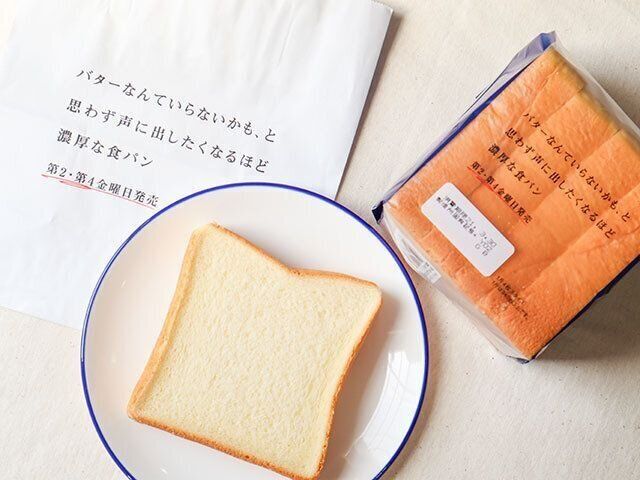 バターなんていらないかも、と
思わず声に出したくなるほど
濃厚な食パン
第2・第4金曜日発売
バターなんていらないかも、と
思わず声に出したくなるほど
濃厚な食パン
第2・第4金曜日発売